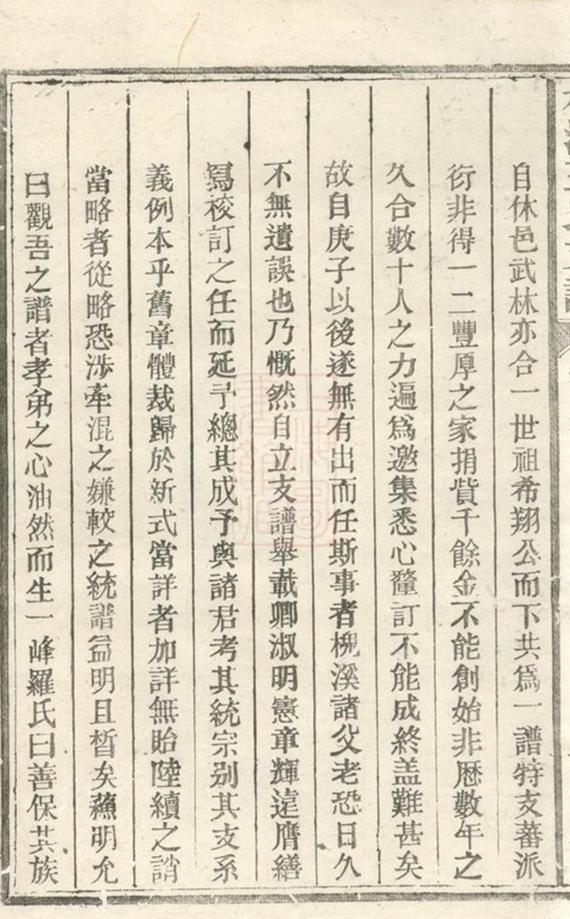 自休邑武林亦合一世祖希翔公而下共爲一譜特支蕃派
衍非得一二豐厚之家捐貲千餘金不能創始非歷數年之
久合數十人之力遍爲邀集悉心釐訂不能成終盖難甚矣
故自庚子以後遂無有出而任斯事者梘溪諸父老恐日久
不無遺誤也乃慨然自立支譜舉載卿淑明憲章輝遠膺繕
寫校訂之任而延予總其成予與諸君考其統宗别其支系
義例本乎舊章體裁歸於新式當詳者加詳無貽陸續之誚
當略者從略恐涉牽混之嫌較之統譜益明且晳矣蘓明允
曰觀吾之譜者孝弟之心油然而生一峰羅氏曰善保其族